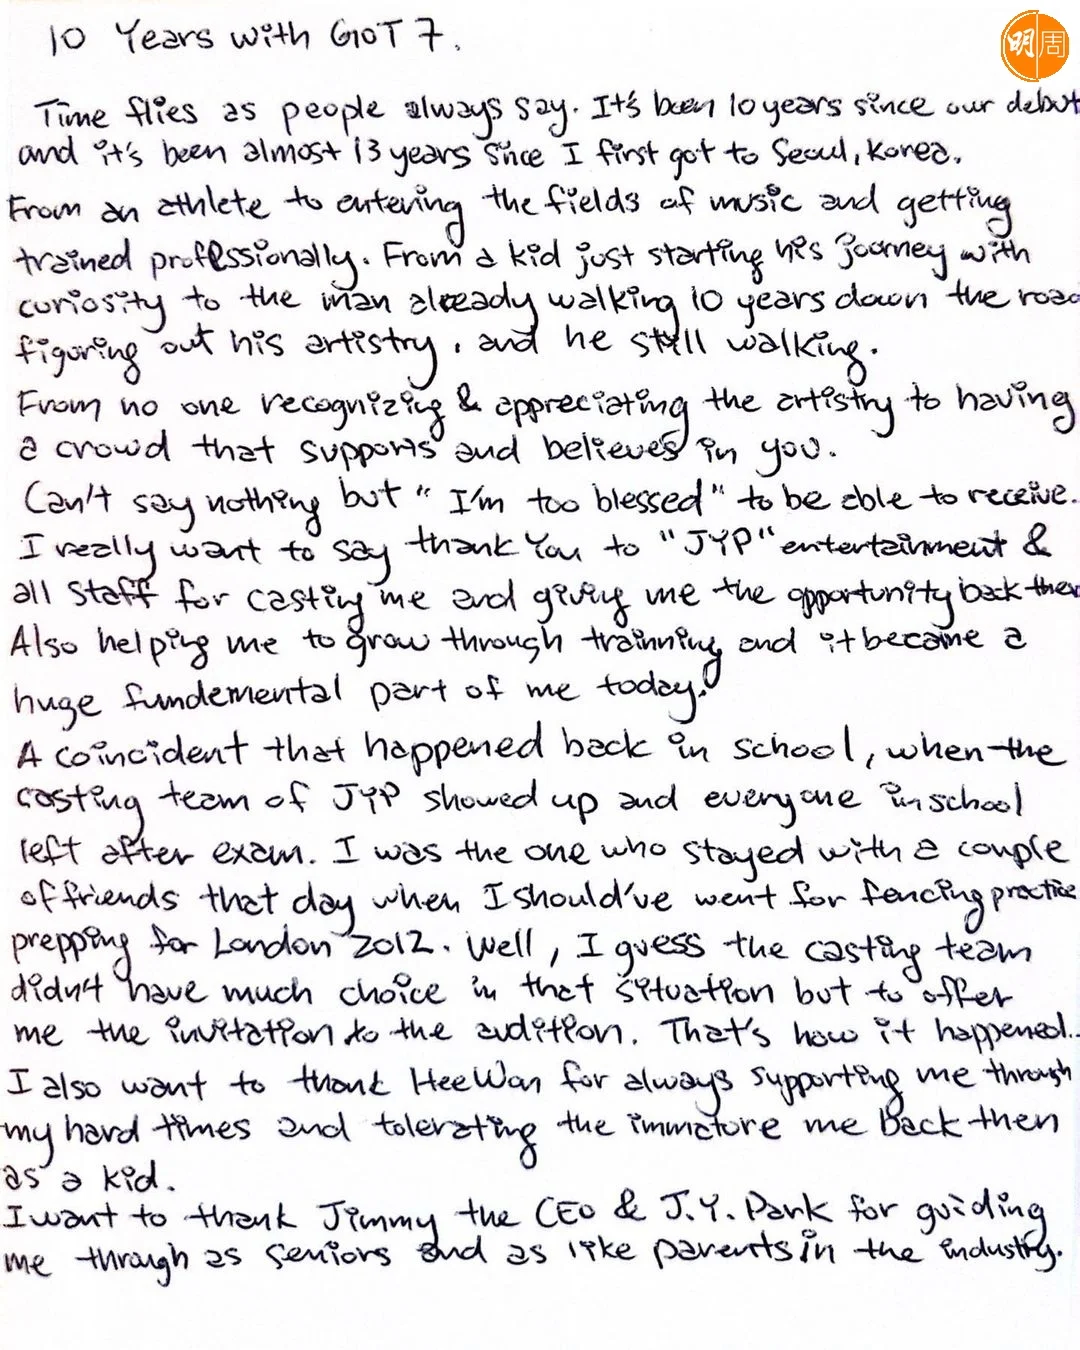 明周
10 Years with GOT7.
Time flies as people always say. It's been 10 years since our debut
and it's been almost 13 years since I first got to Seoul, Korea.
From an athlete to entering the fields of music and getting
trained professionally. From a kid just starting his journey with
curiosity to the man already walking 10 years down the road
figuring out his artistry, and he still walking.
From no one recognizing & appreciating the artistry to having
a crowd that supports and believes in you.
Can't say nothing but "I'm too blessed" to be able to receive.
I really want to say thank You to "JYP" entertainment &
all staff for casting me and giving me the opportunity back then
Also helping me to grow through trainning and it became a
huge fundemental part of me today.
A coincident that happened back in school, when the
casting team of JYP showed up and everyone in school
left after exam. I was the one who stayed with a couple
of friends that day when I should've went for fencing practice
prepping for London 2012. Well, I guess the casting team
didn't have much choice in that situation but to offer
me the invitation to the audition. That's how it happened..
I also want to thank HeeWon for always supporting me through
my hard times and tolerating the immature me back then
as a kid.
I want to thank Jimmy the CEO & J.Y. Park for guiding
me through as seniors and as like parents in the industry.